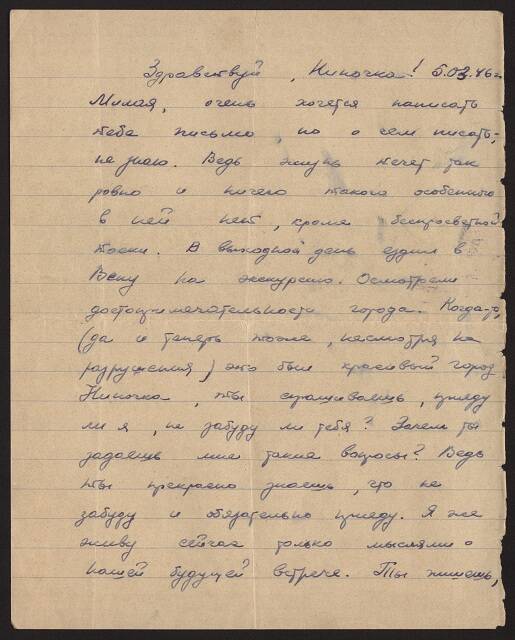 Здравствуй, Ниночка! 5.03.46 г.
Милая, очень хочется написать
тебе письмо, но о чем писать,-
не знаю. Ведь жизнь течет так
ровно и ничего такого особенного
в ней нет, кроме беспросветной
тоски. В выходной день ездил в
Вену на экскурсию. Осмотрели
достопримечательности города. Когда-то,
(да и теперь тоже, несмотря на
разрушения) это был красивый город.
Ниночка, ты спрашиваешь, приеду
ли я, не забуду ли тебя? Зачем ты
задаешь мне такие вопросы? Ведь
ты прекрасно знаешь, что не
забуду и обязательно приеду. Я же
живу сейчас только мыслями о
нашей будущей встрече. Ты пишешь,